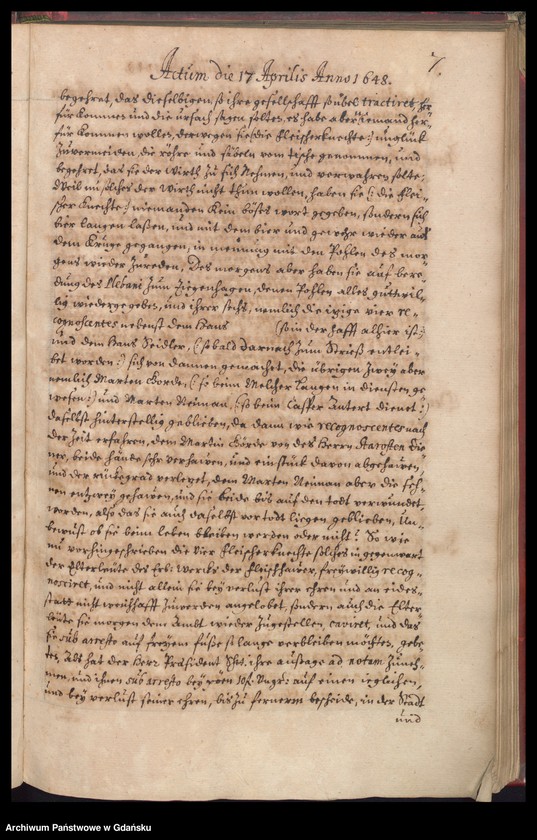 7.
Actum die 17 Aprilis Anno 1648.
begehret, das dieselbigen, so ihre gesellschafft so übel tractiret, her
für kommen und die ursach sagen solten, es habe aber niemand her
für kommen wollen, derwegen sie (: die fleischerknechte :) unglück
zuvermeiden, die röhre und säbeln vom tische genommen, und
begehret, das sie der Wirth zu sich nehmen, und verwahren solte,
Weil nu solches der Wirth nicht thun wollen, haben sie (: die flei-
scher knechte :) niemanden kein böses wort gegeben, sondern sich
bier langen laßen, und mit dem bier und gewehr wieder auß
dem Kruge gegangen, in meinung mit den Pohlen des mor-
gens wieder zureden, Des morgens aber haben sie auf bere-
dung des zum Ziegenhagen, denen Pohlen alles guttwil-
lig wiedergegeben, und ihrer sechs, nemlich die itzige vier re-
cognoscentes nebenst dem Hans (so in der hafft alhier ist :)
und dem Hans Seidler, (: so bald darnach zum entlei-
bet worden :) sich von dannen gemachet, die übrigen zwey aber
nemlich Marten Borde, (: so beim Melcher Langen in diensten ge
wesen :) und Marten Neiman, (: so beim Casper Antert dienet :)
daselbst hinterstellig geblieben, da dann wie recognoscentes nach
der Zeit erfahren, dem Martin Börde von des Herrn Starosten die-
ner, beide hände sehr verhawen, und ein stück davon abgehawen,
und der rückegrad verletzet, dem Marten Neiman aber die seh-
nen entzwey gehawen, und sie beide bis auf den todt verwundet
worden, also das sie auch daselbst vor todt liegen geblieben, Un-
bewust ob sie beim leben bleiben werden oder nicht? So wie
nu vorhingeschrieben die vier fleischerknechte solches in gegenwart
der Elterleute des Erb: Wercks der fleischhawer, freywillig recog-
nosciret, und nicht allein sie bey verlust ihrer ehren und an eides-
statt nicht weichhafft zuwerden angelobet, sondern auch die Elter
leute sie morgen dem Ambt wieder zugestellen, caviret, und das
sie sub arresto auf freyen fuße so lange verbleiben möchten, gebe-
ten, Als hat der Herr Præsident ihre aussage ad notam zuneh-
men, und ihnen sub arresto bey pöen auf einen ieglichen,
und bey verlust seiner ehren, bis zu fernerm bescheide, in der Stadt
und
Archiwum Państwowe w Gdańsku